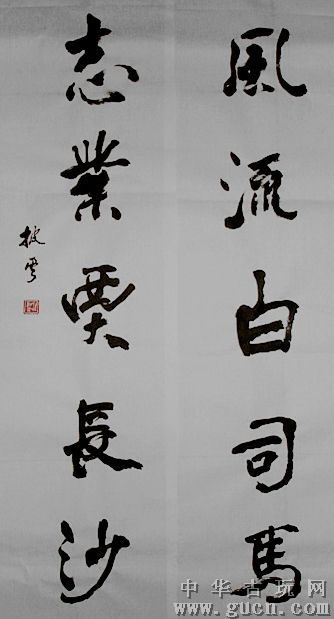 風流白司馬
志業賈長沙
披雲
中华古玩网
www.gucn.com